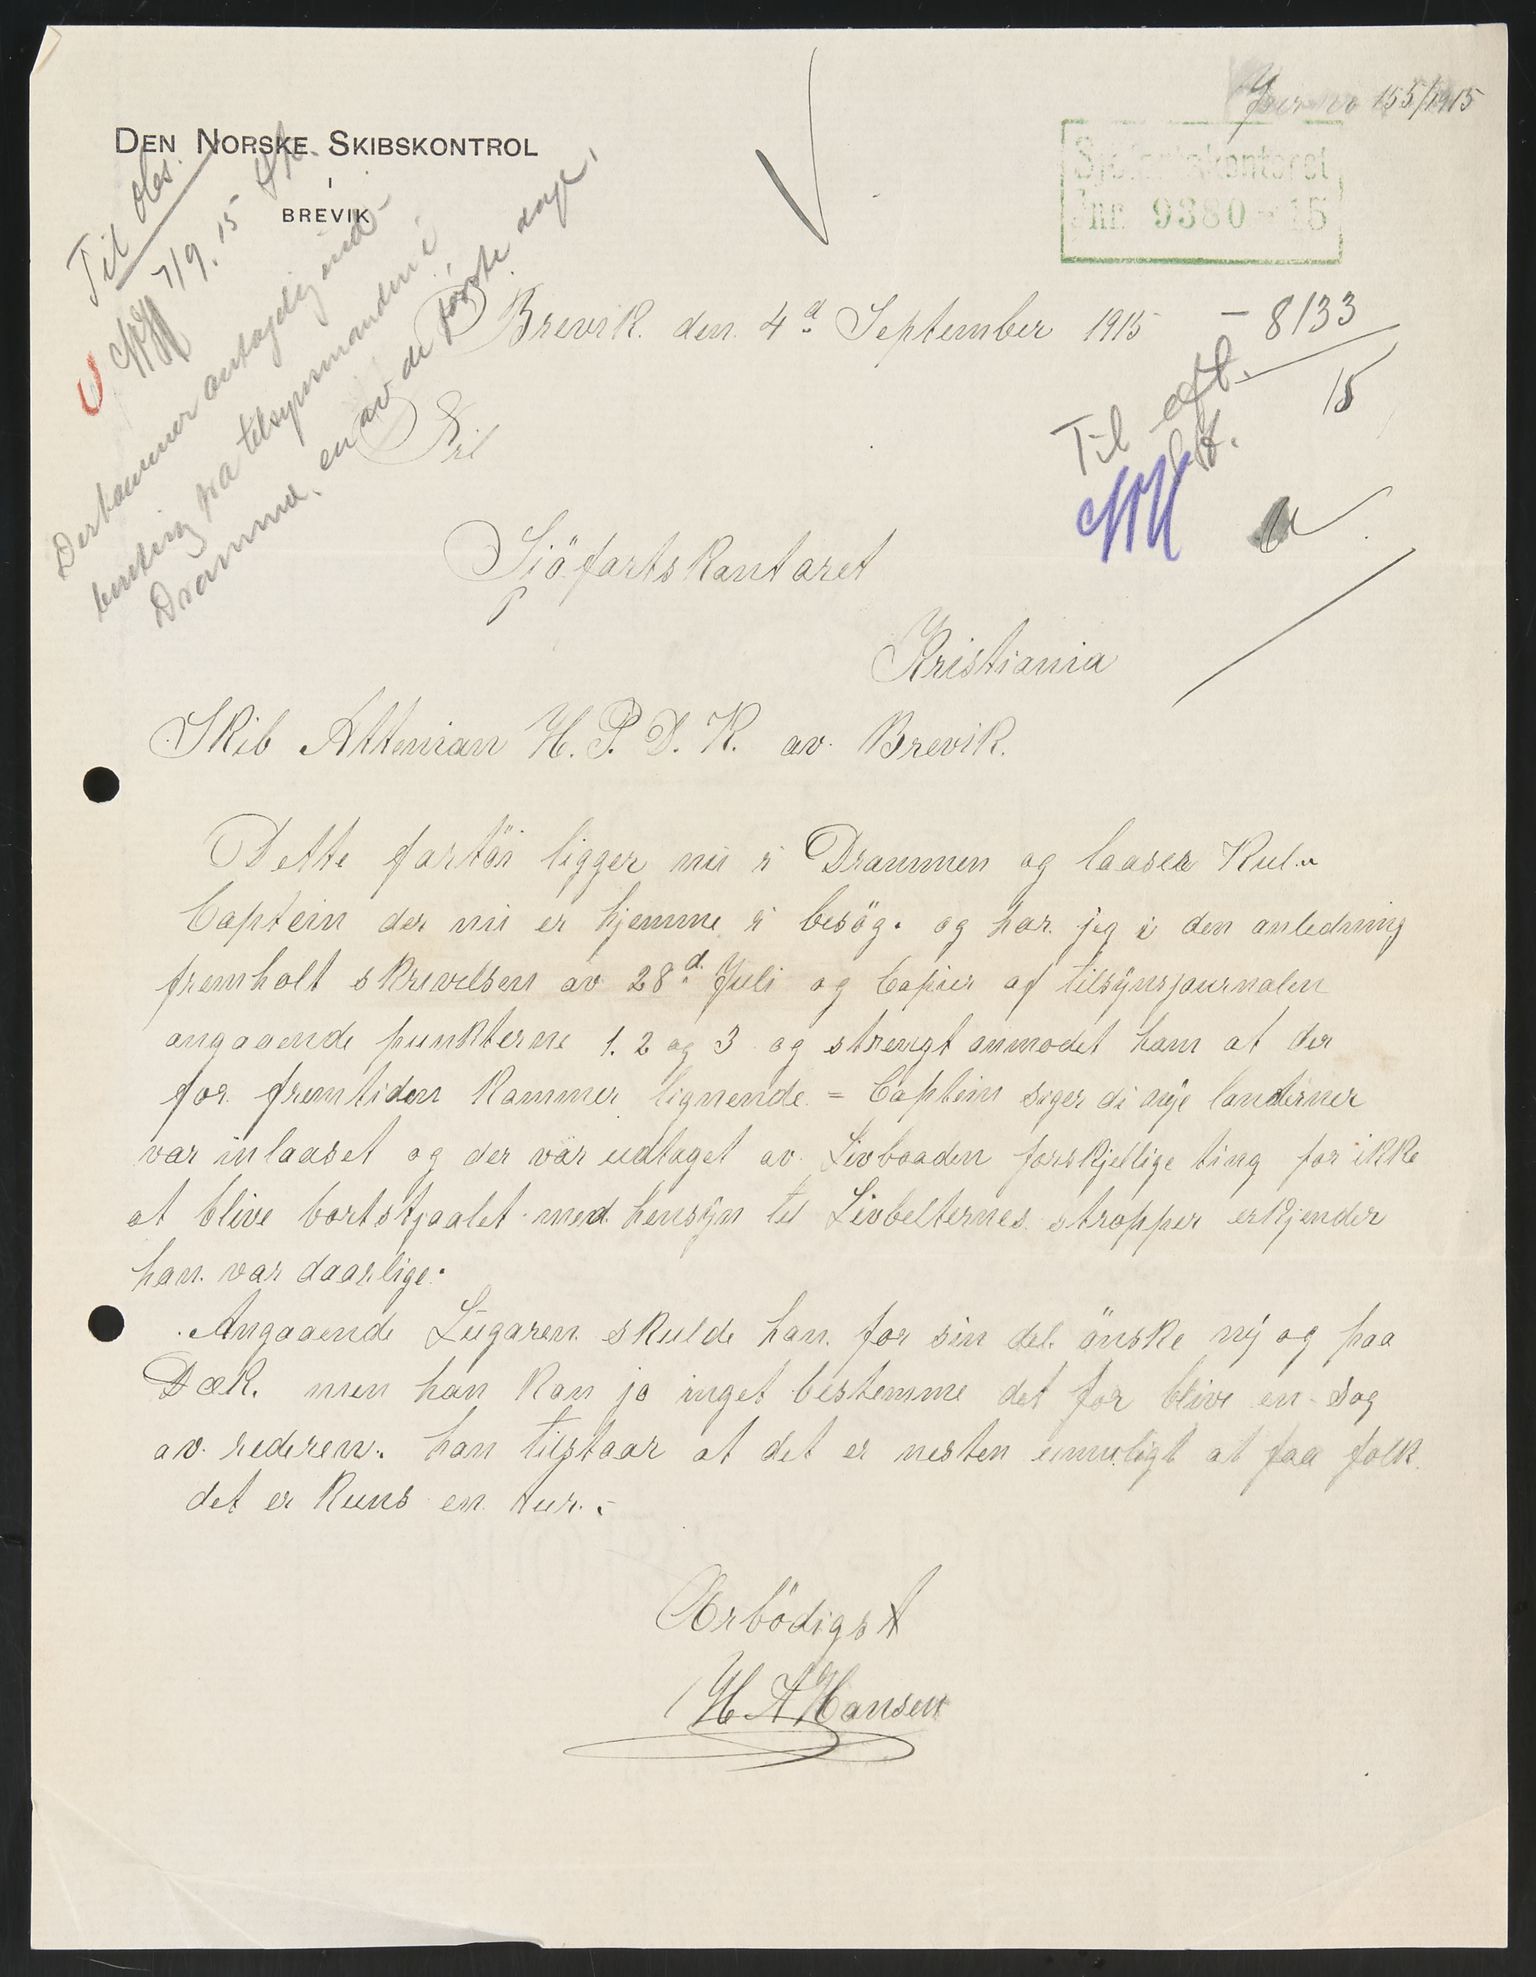 Jour no 155/1915
DEN NORSKE SKIBSKONTROL
I
BREVIK
Sjøfartskontoret
Jnr. 9380 - 15
Til obs.
7/9.15
Der kommer antagelig ind-
beretning fra tilsynsmanden i
Drammen en av de første dage.
Brevik den 4d September 1915
- 8133
15
Til eft.
Til
Sjöfartskontaret
Kristiania
Skib Attenian H. P. D. K. av Brevik.
Dette fartöi ligger nu i Drammen og laaser Kul
Captein der nu er hjemme i besög. og har jeg i den anledning
fremholt skrivelsen av 28d Juli og Copier af tilsÿnsjournalen
angaaende punkterne 1. 2 og 3 og strengt anmodet ham at der
for fremtiden kommer lignende = Captein siger di nÿe lanterner
var inlaaset og der var udtaget av Livbaaden forskjellige ting for ikke
at blive bortstjaalet med hensÿn til Livbelternes stropper erkjender
han var daarlige.
Angaaende Lugaren skulde han for sin del önske nÿ og paa
Dæk. men han kan jo inget bestemme det for blive en sag
av rederen. han tilstaar at det er nesten eumuligt at faa folk
det er kuns en tur.
Ærbödigst
H A Hansen